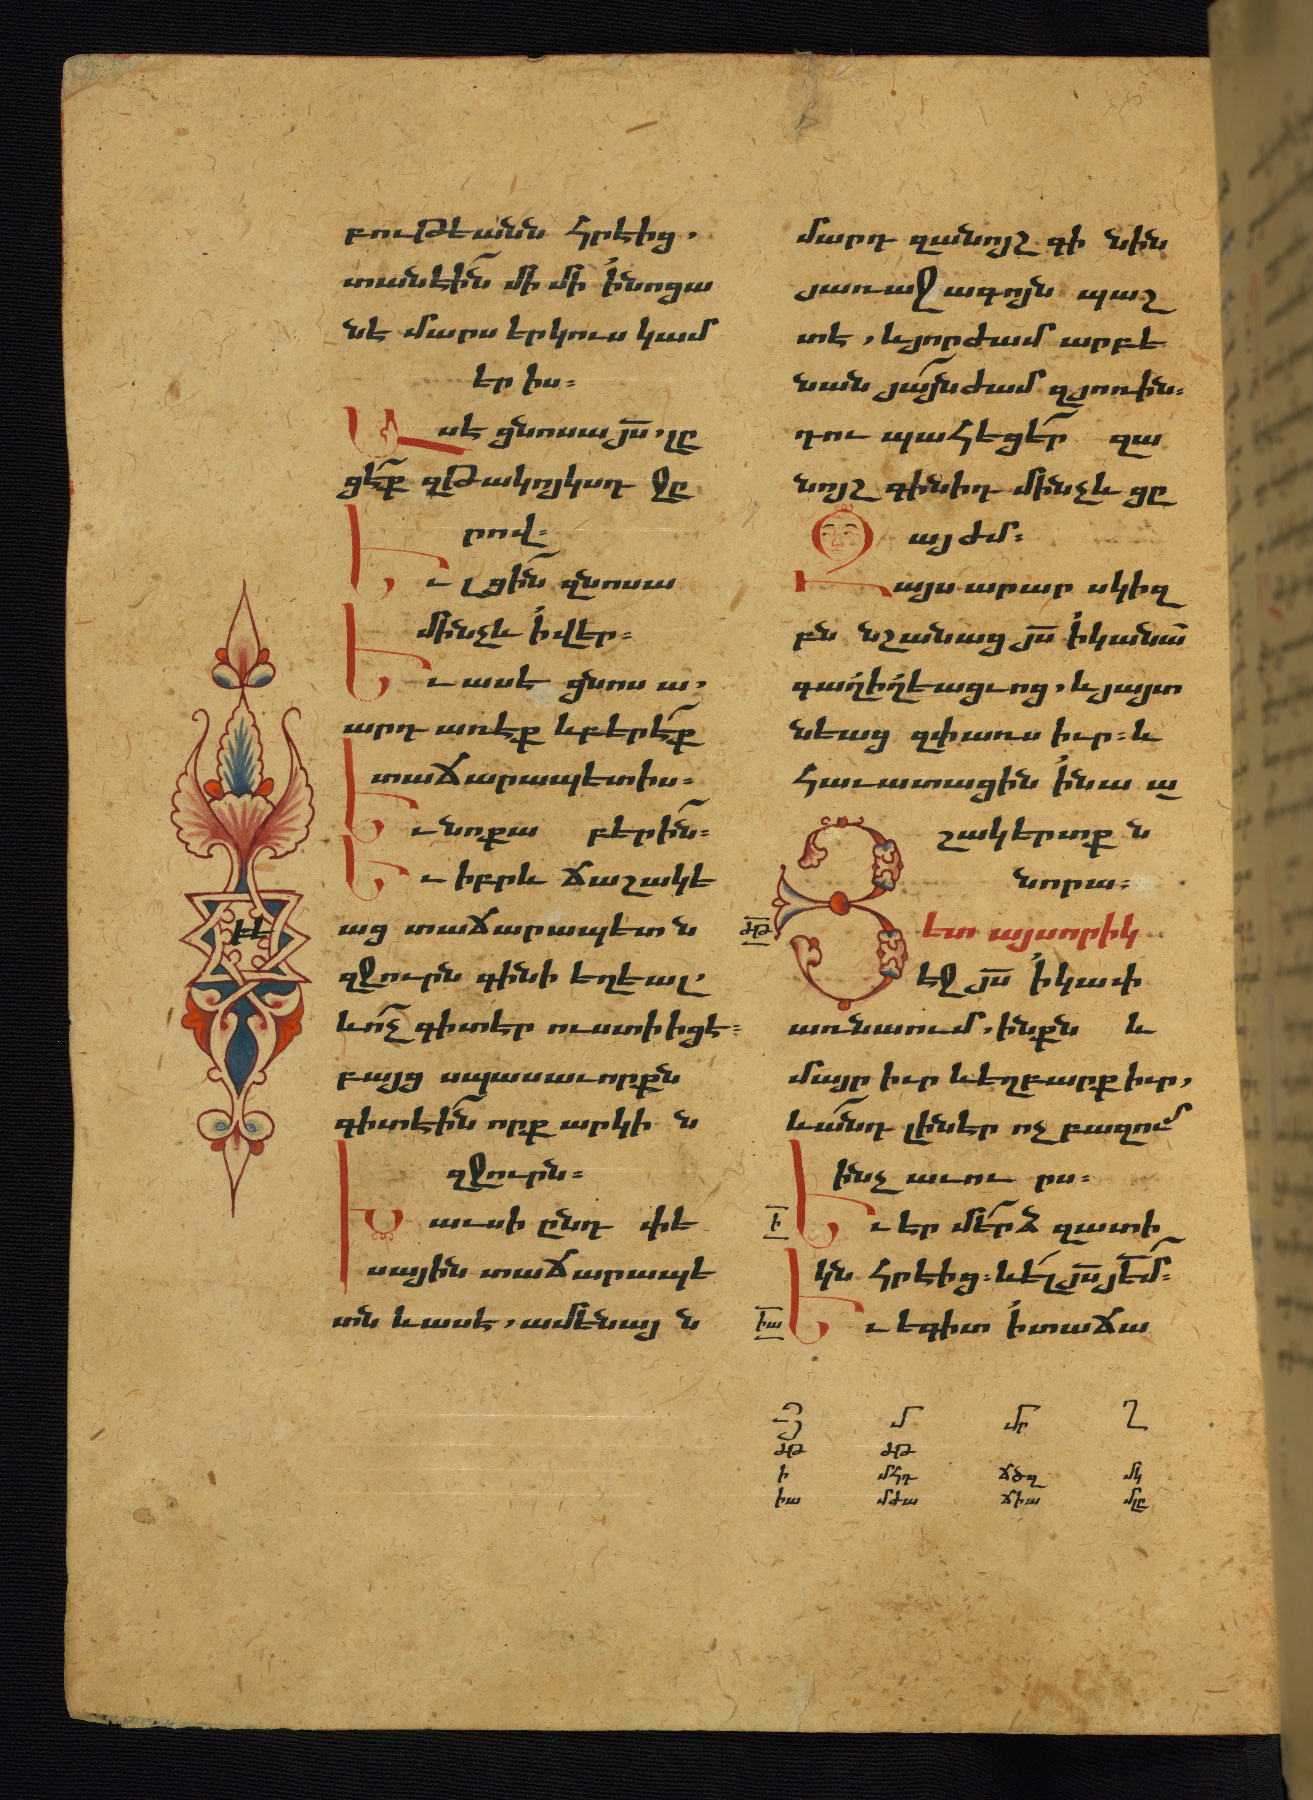 բութեանն հրէից,
տանէին մի մի ՛ի նոցա
նէ մարս երկուս կամ
երիս։
Ասէ ցնոսա յս՟, լը
ցէք զթակոյկսդ ջը
րով։
Եւ լցին զնոսա
մինչև ՛ի վեր։
Եւ ասէ ցնոսա,
արդ առէք և բերէք
տաճարապետիս։
Եւ նոքա բերին։
Եւ իբրև ճաշակե
աց տաճարապետն
զջուրն գինի եղեալ,
և ոչ գիտէր ուստի իցէ։
բայց սպասաւորքն
գիտէին որք արկին
զջուրն։
Խաւսի ընդ փե
սային տաճարապե
տն և ասէ, ամենայն
մարդ զանոյշ գինին
յառաջագոյն պաշ
տէ, և յորժամ արբե
նան յայնժամ զյոռին։
դու պահեցեր զա
նոյշ գինիդ մինչև ցը
այժմ։
Զայս արար սկիզ
բն նշանաց յս՟ ՛ի կանա՟
գաղիղեացւոց, և յայտ
նեաց զփառս իւր։ և
հաւատացին ՛ի նա ա
շակերտքն
նորա։
ԺԹ
Յետ այսորիկ
էջ յս՟ ՛ի կափ
առնաում, ինքն և
մայր իւր և եղբարք իւր,
և անդ լինէր ոչ բազում
ինչ աւուրս։
Ի
Եւ էր մերձ զատի
կն հրէից։ և ել յս՟ յեմ՟։
ԻԱ
Եւ եգիտ ՛ի տաճա
ԲԷ
Յ Մ Մր Ղ
ԺԹ ԺԹ
Ի ՄՀԴ ՃԾԶ ՄԿ
ԻԱ ՄԺԱ ՃԻԱ ՄԼԸ